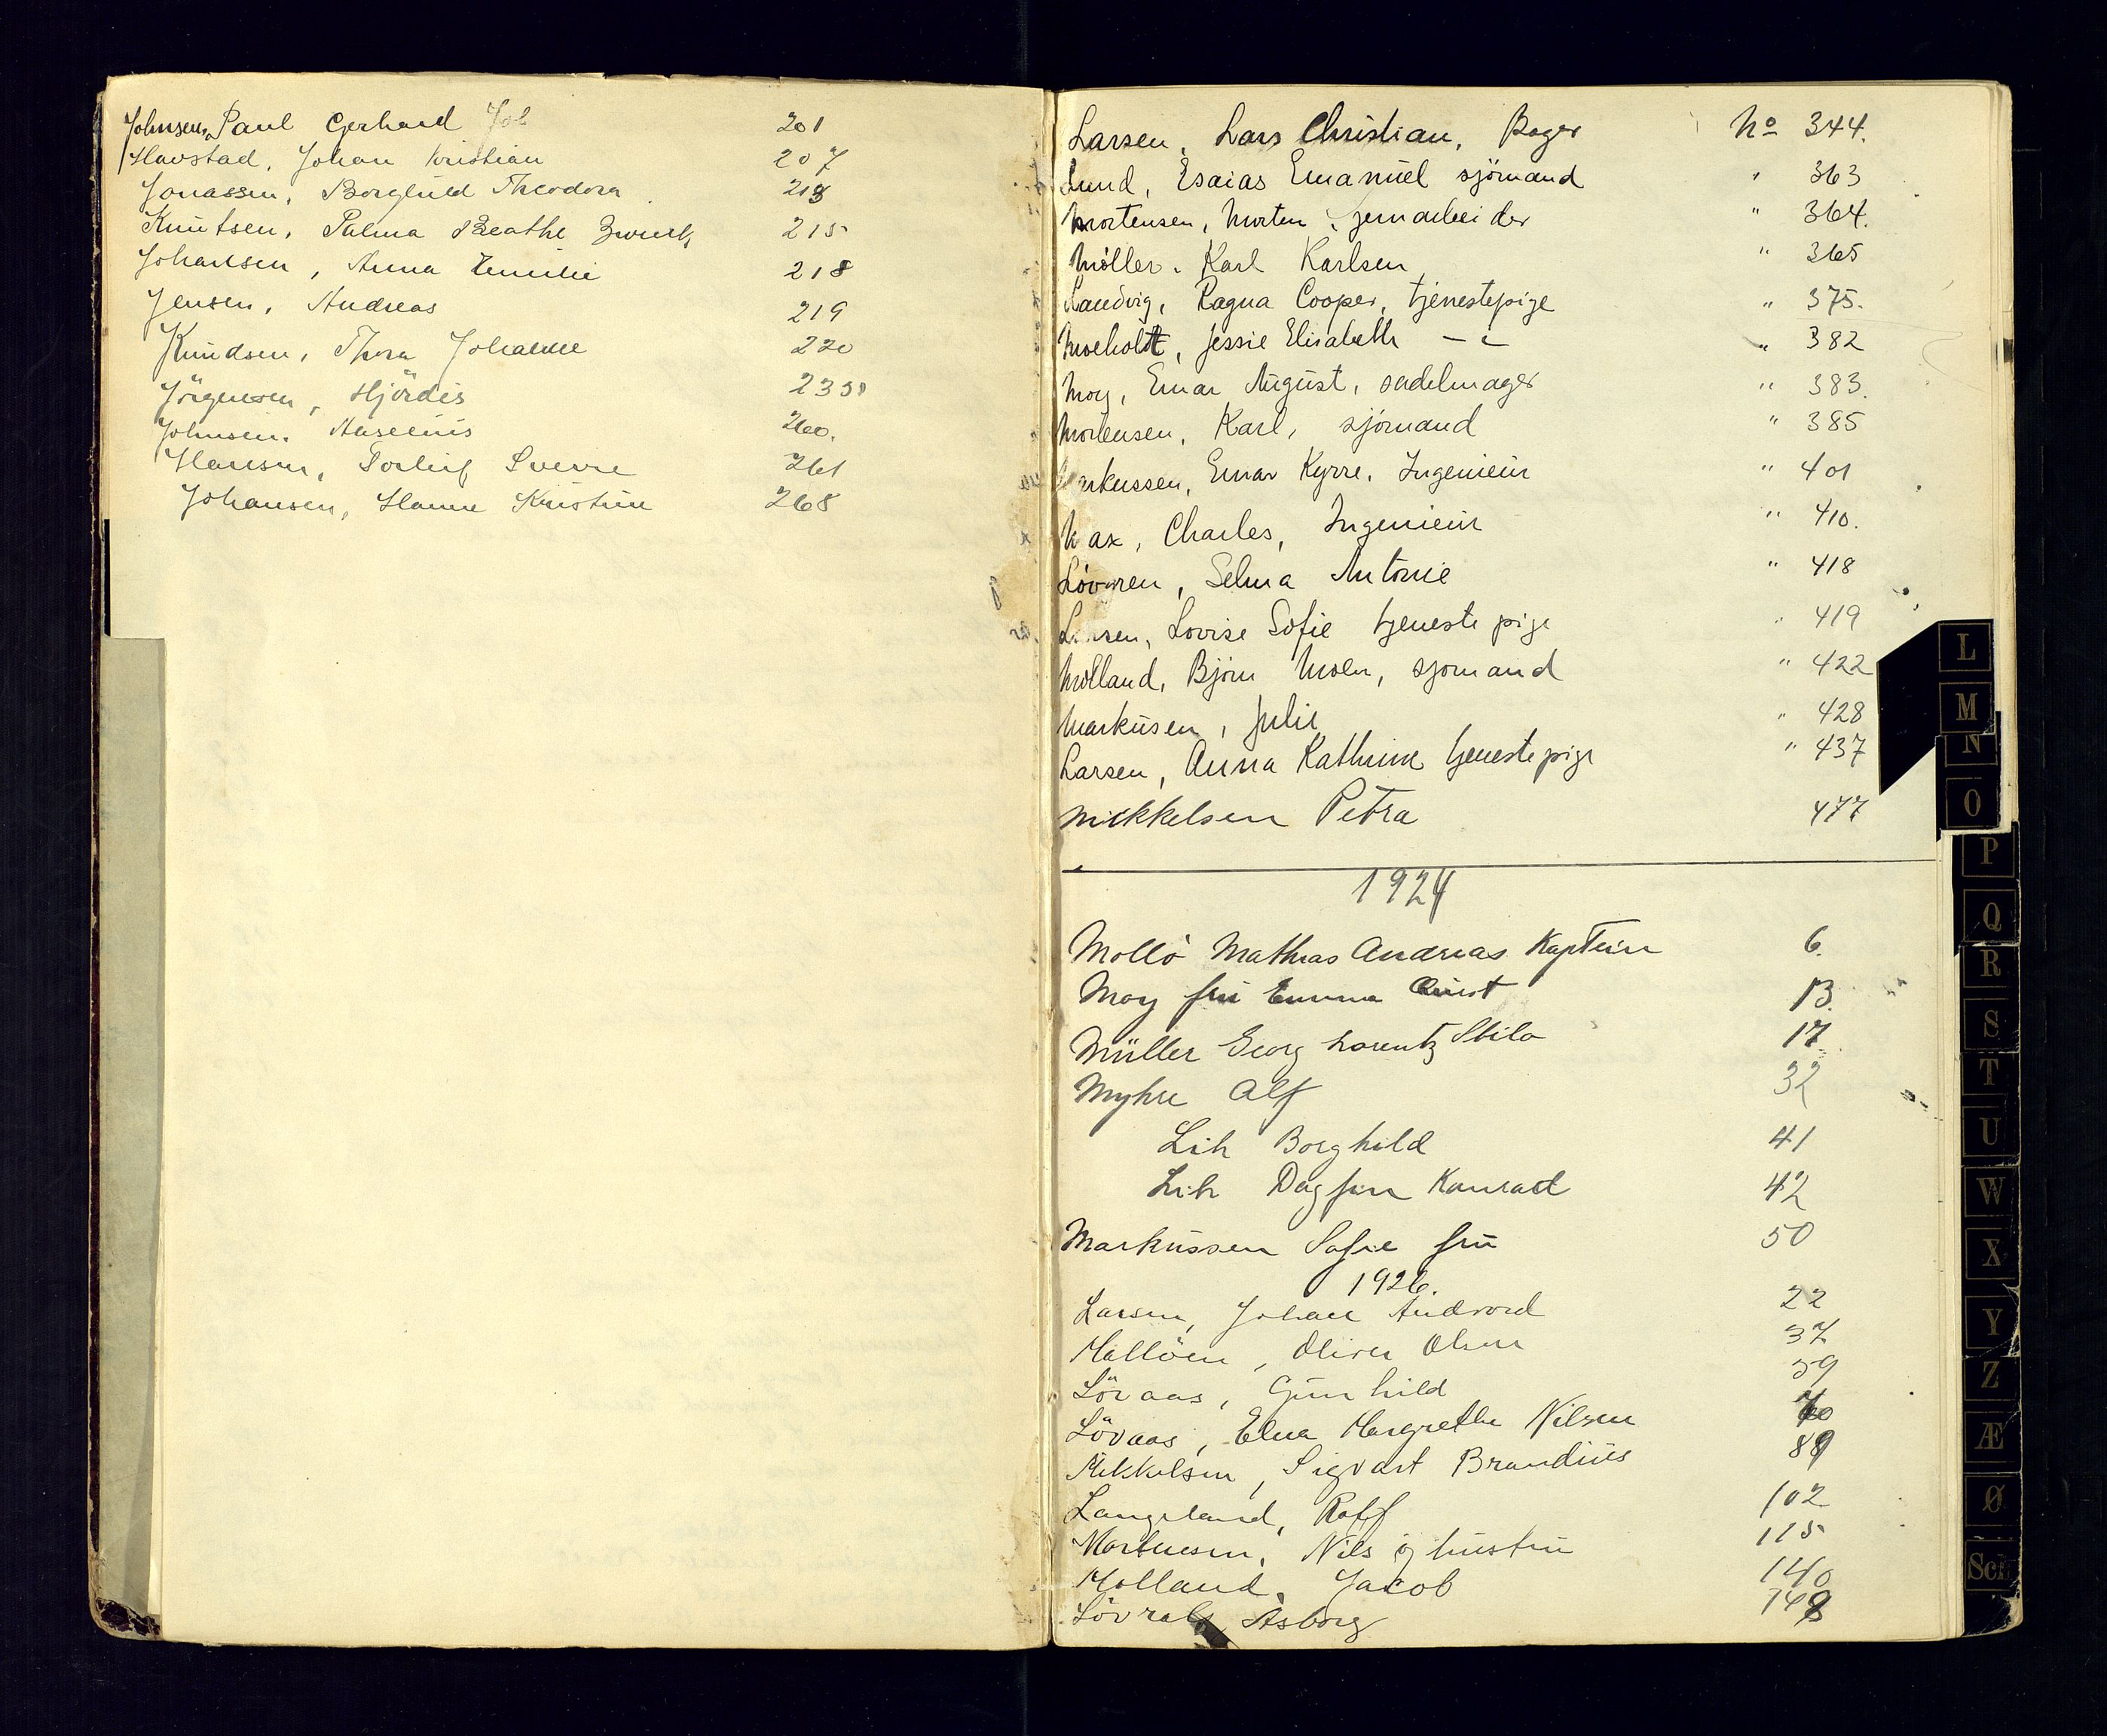 Johnsen, Paul Gerhard Joh 201
Havstad, Johan Kristian 207
Jonassen, Borghild Theodora 213
Knutsen, Palma Beathe 215
Johansen, Anna Emilie 218
Jensen, Andreas 219
Knudsen, Thora Johanne 220
Jörgensen, Hjördis 235
Johnsen, Anseenius 260.
Hansen, Torleif Sverre 261
Johansen, Hanne Kristine 268
Larsen, Lars Christian, Bager No 344.
Lund, Esaias Emanuel sjömand " 363
Mortensen, Morten, jernarbeider " 364.
Möller, Karl Karlsen " 365
Landvig, Ragna Cooper, tjenestepige " 375.
Moeholdt, Jessie Elisabeth — " — " 382
Moy, Einar August, sadelmager " 383.
Mortensen, Karl, sjömand " 385
Markussen, Einar Kyrre, Ingenieur " 401
Max, Charles, Ingenieur " 410.
Lövgren, Selma Antonie " 418
Larsen, Lovise Sofie tjenestepige " 419
Molland, Björn Moen, sjömand " 422
Markusen, Julie " 428
Larsen, Anna Kathrine tjenestepige " 437
Mikkelsen Petra 477
1924
Mollö Mathias Andreas Kaptein 6.
Moy fru Emma Quist 13.
Müller Georg Lorentz 17.
Myhre Alf 32
Lih Borghild 41
Lih Dagfinn Konrad 42
Markussen Sofie fru 50
1926.
Larsen, Johan Andvord 22
Mallöen, Oliver Olsen 37
Lövaas, Gunhild 39
Lövaas, Elna Margrethe Nilsen 40
Mikkelsen, Sigvart Brandius 89
Langeland, Rolf 102
Martinesen, Nils og hustru 115
Molland, Jacob 140
Asborg 148